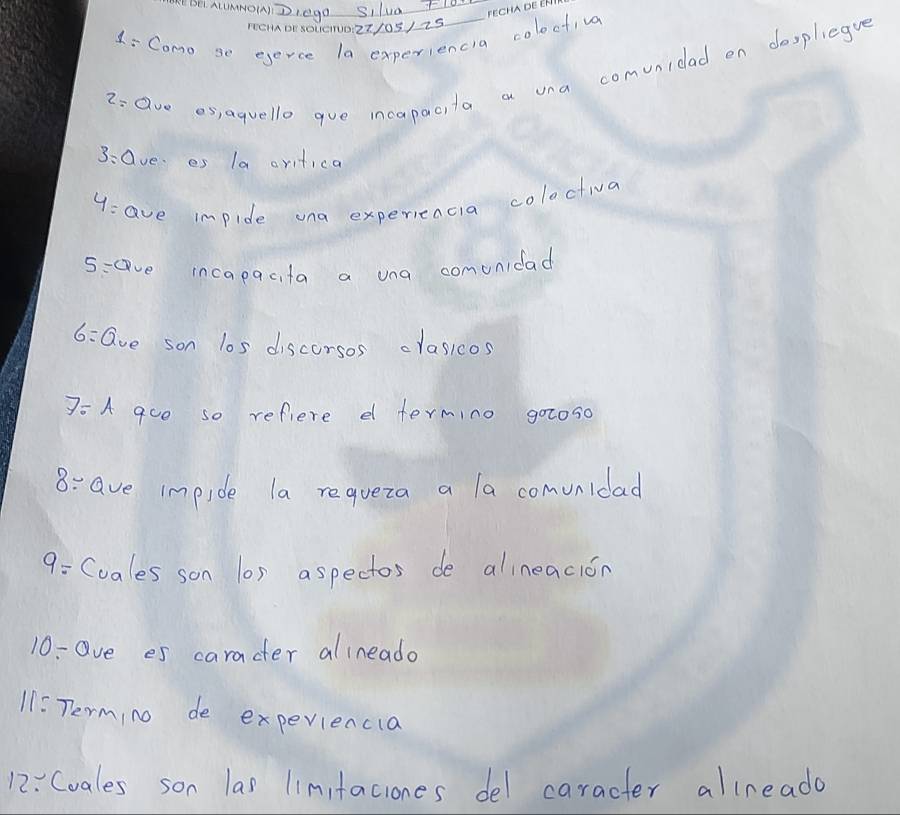 DEL ALUMNO(A): Diego Silva
FECHA DE SOLICITUD: 22/05/25 FECHA DE
1= Como se ejerce la experiencia colectiva
2= Que es, aquello que incapacita a una comunidad en despliegue
3= Que es la critica
4= que impide una experiencia colectiva
5= Que incapacita a una comunidad
6= Que son los discursos clasicos
7= A que se refiere el termino gozoso
8= Que impide la requeza a la comunidad
9= Cuales son los aspectos de alineación
10= Que es caracter alineado
11= Termino de experiencia
12= Cuales son las limitaciones del caracter alineado